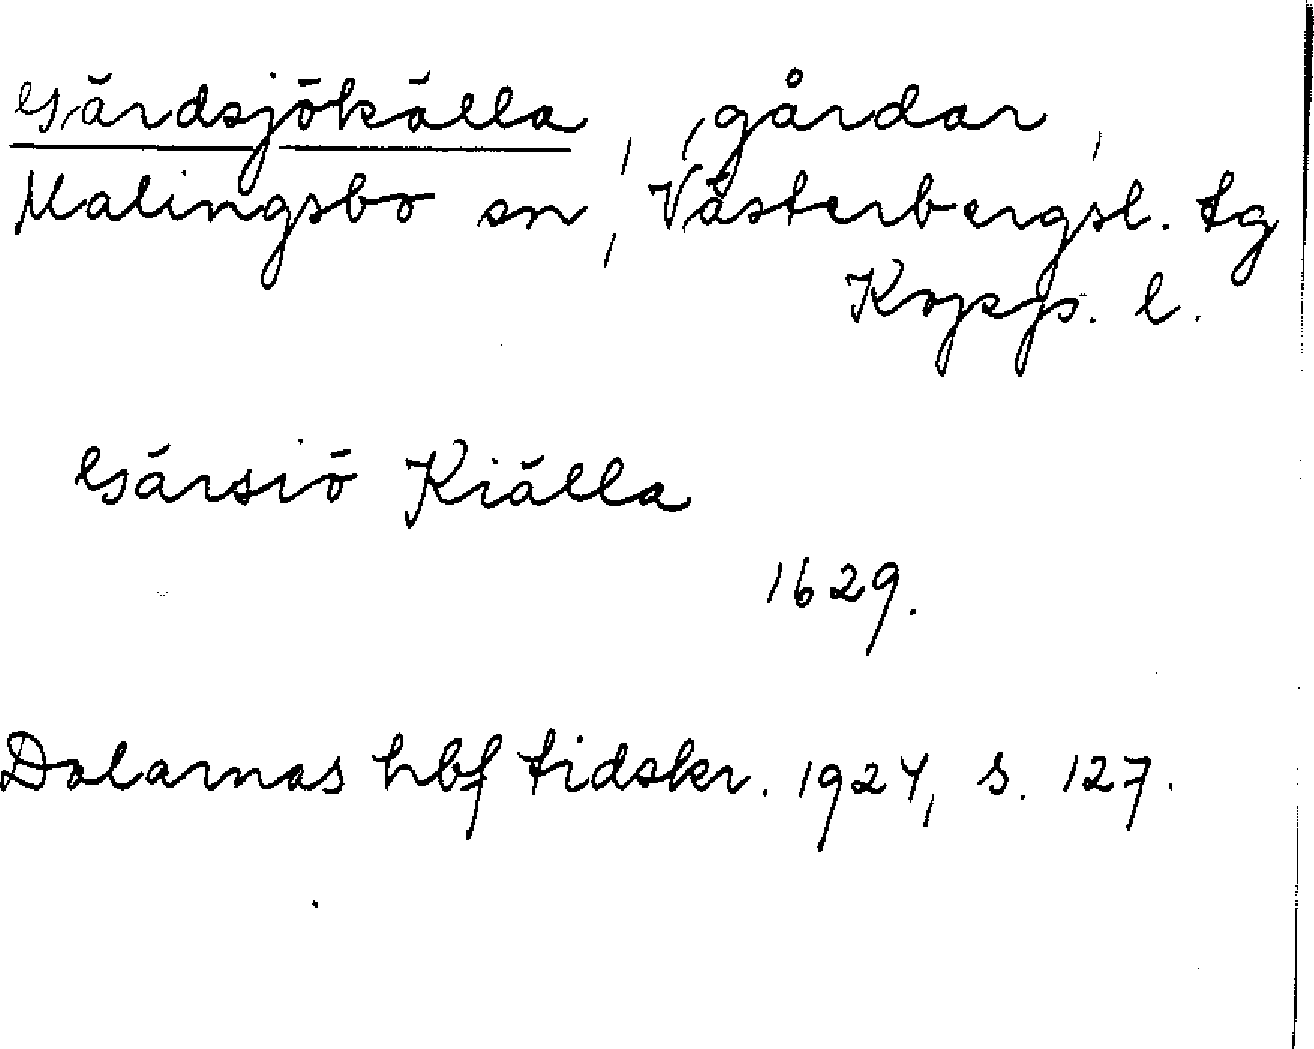 Gärdsjökälla, gårdar,
Malingsbo sn, Västerbergsl. tg
Kopps. l.
Gärsiö Kiälla
1629.
Dalarnas hbf tidskr. 1924, s. 127.